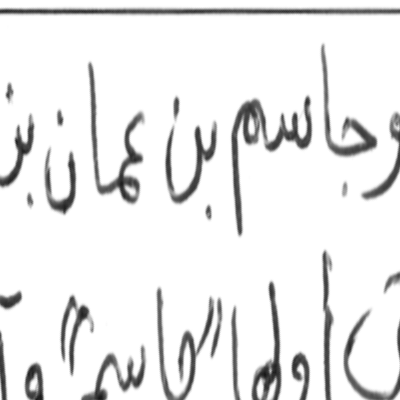 وجاسم بن عمان بن
أولها "جاسم" و